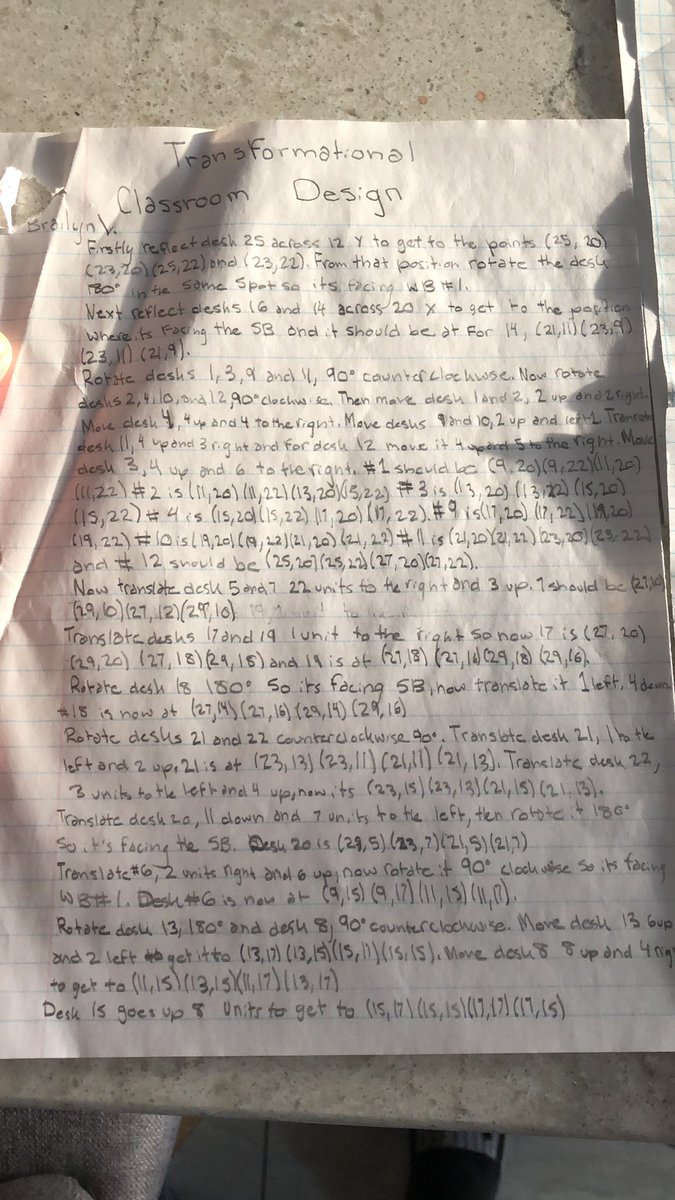 Transformational
Classroom Design
Brailyn V.
Firstly reflect desk 25 across 12 Y to get to the points (25, 20)
(23,20) (25,22) and (23,22). From that position rotate the desk
180° in the same spot so its facing WB #1.
Next reflect desks 16 and 14 across 20 X to get to the position
where its facing the SB and it should be at for 14, (21,11) (23,9)
(23,11) (21,9).
Rotate desks 1, 3, 9 and 11, 90° counterclockwise. Now rotate
desks 2, 4, 10, and 12, 90° clockwise. Then move desk 1 and 2, 2 up and 2 right.
Move desk 4, 4 up and 4 to the right. Move desks 9 and 10, 2 up and left 1. Translate
desk 11, 4 up and 3 right and for desk 12 move it 4 up and 5 to the right. Move
desk 3, 4 up and 6 to the right. #1 should be (9,20) (9,22) (11,20)
(11,22) #2 is (11,20) (11,22) (13,20) (13,22) #3 is (13, 20) (13,22) (15,20)
(15,22) #4 is (15,20) (15,22) (17,20) (17,22). #9 is (17,20) (17,22) (19,20)
(19,22) #10 is (19,20) (19,22) (21,20) (21,22) #11 is (21,20) (21,22) (23,20) (23,22)
and #12 should be (25,20) (25,22) (27,20) (27,22).
Now translate desk 5 and 7 22 units to the right and 3 up. 7 should be (27,10)
(29,10) (27,12) (29,10)
Translate desks 17 and 19 1 unit to the right so now 17 is (27, 20)
(29,20) (27,18) (29,18) and 19 is at (27,18) (27,16) (29,18) (29,16).
Rotate desk 18 180° so its facing SB, now translate it 1 left, 4 down.
#18 is now at (27,14) (27,16) (29,14) (29,16)
Rotate desks 21 and 22 counterclockwise 90°. Translate desk 21, 1 to the
left and 2 up. 21 is at (23,13) (23,11) (21,11) (21,13). Translate desk 22,
3 units to the left and 4 up, now its (23,15) (23,13) (21,15) (21,13).
Translate desk 20, 11 down and 7 units to the left, then rotate it 180°
So it's facing the SB. Desk 20 is (23,5) (23,7) (21,5) (21,7)
Translate #6, 2 units right and 6 up, now rotate it 90° clockwise so its facing
WB #1. Desk #6 is now at (9,15) (9,17) (11,15) (11,17).
Rotate desk 13, 180° and desk 8, 90° counterclockwise. Move desk 13 6 up
and 2 left to get it to (13,17) (13,15) (15,17) (15,15). Move desk 8 8 up and 4 right
to get to (11,15) (13,15) (11,17) (13,17)
Desk 15 goes up 8 units to get to (15,17) (15,15) (17,17) (17,15)